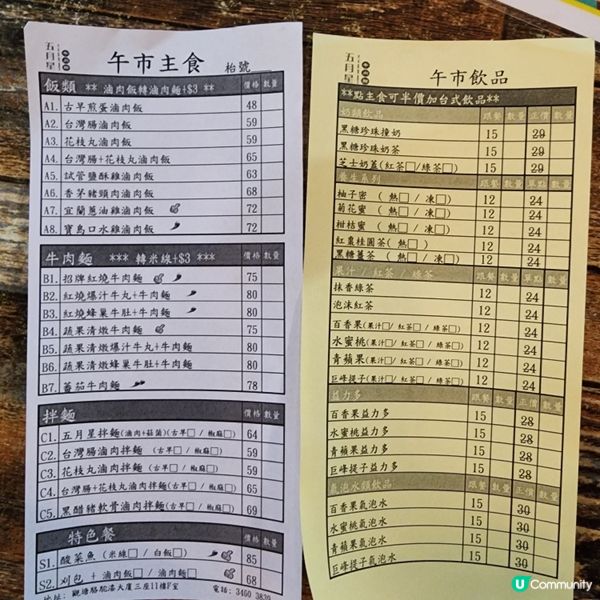 五月星
午市主食
枱號
飯類 ** 滷肉飯轉滷肉麵+$3 ** 價格 數量
A1. 古早煎蛋滷肉飯 48
A2. 台灣腸滷肉飯 59
A3. 花枝丸滷肉飯 59
A4. 台灣腸+花枝丸滷肉飯 65
A5. 試管鹽酥雞滷肉飯 63
A6. 香茅豬頸肉滷肉飯 68
A7. 宜蘭蔥油雞滷肉飯 72
A8. 寶島口水雞滷肉飯 72
牛肉麵 *** 轉米線+$3 *** 價格 數量
B1. 招牌紅燒牛肉麵 75
B2. 紅燒爆汁牛丸+牛肉麵 80
B3. 紅燒蜂巢牛肚+牛肉麵 80
B4. 蔬果清燉牛肉麵 75
B5. 蔬果清燉爆汁牛丸+牛肉麵 80
B6. 蔬果清燉蜂巢牛肚+牛肉麵 80
B7. 蕃茄牛肉麵 78
拌麵 價格 數量
C1. 五月星拌麵(滷肉+菇菌)(古早□ / 椒麻□) 64
C2. 台灣腸滷肉拌麵 (古早□ / 椒麻□) 59
C3. 花枝丸滷肉拌麵 (古早□ / 椒麻□) 59
C4. 台灣腸+花枝丸滷肉拌麵(古早□ / 椒麻□) 65
C5. 黑醋豬軟骨滷肉拌麵(古早□ / 椒麻□) 69
特色餐 價格 數量
S1. 酸菜魚 (米線□ / 白飯□) 85
S2. 刈包 + 滷肉飯□ / 滷肉麵□ 68
地址: 觀塘駱駝漆大廈三座11樓F室 電話: 3460 3830
五月星
午市飲品
**點主食可半價加台式飲品**
奶類飲品 跟餐 數量 正價 數量
黑糖珍珠撞奶 15 29
黑糖珍珠奶茶 15 29
芝士奶蓋(紅茶□/綠茶□) 15 29
養生系列 跟餐 數量 單點 數量
柚子蜜 ( 熱□ / 凍□ ) 12 24
菊花蜜 ( 熱□ / 凍□ ) 12 24
柑桔蜜 ( 熱□ / 凍□ ) 12 24
紅棗桂圓茶( 熱□ ) 12 24
黑糖薑茶 ( 熱□ / 凍□ ) 12 24
果汁 / 紅茶 / 綠茶 跟餐 數量 單點 數量
抹香綠茶 12 24
泡沫紅茶 12 24
百香果(果汁□/ 紅茶□ / 綠茶□) 12 24
水蜜桃(果汁□/ 紅茶□ / 綠茶□) 12 24
青蘋果(果汁□/ 紅茶□ / 綠茶□) 12 24
巨峰提子(果汁□/ 紅茶□ / 綠茶□) 12 24
益力多 跟餐 數量 正價 數量
百香果益力多 15 28
水蜜桃益力多 15 28
青蘋果益力多 15 28
巨峰提子益力多 15 28
氣泡水類飲品 跟餐 數量 正價 數量
百香果氣泡水 15 30
水蜜桃氣泡水 15 30
青蘋果氣泡水 15 30
巨峰提子氣泡水 15 30
U Community